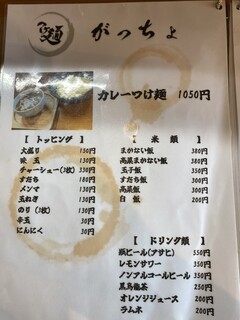 麺 がっちょ
カレーつけ麺 1050円
【 トッピング 】
大盛り 150円
味玉 130円
チャーシュー(3枚) 330円
すだち 180円
メンマ 130円
玉ねぎ 130円
のり(3枚) 130円
辛玉 30円
にんにく 30円
【 米類 】
まかない飯 380円
高菜まかない飯 380円
玉子飯 350円
すだち飯 300円
高菜飯 300円
白飯 200円
【 ドリンク類 】
瓶ビール(アサヒ) 550円
レモンサワー 380円
ノンアルコールビール 350円
黒烏龍茶 250円
オレンジジュース 200円
ラムネ 200円